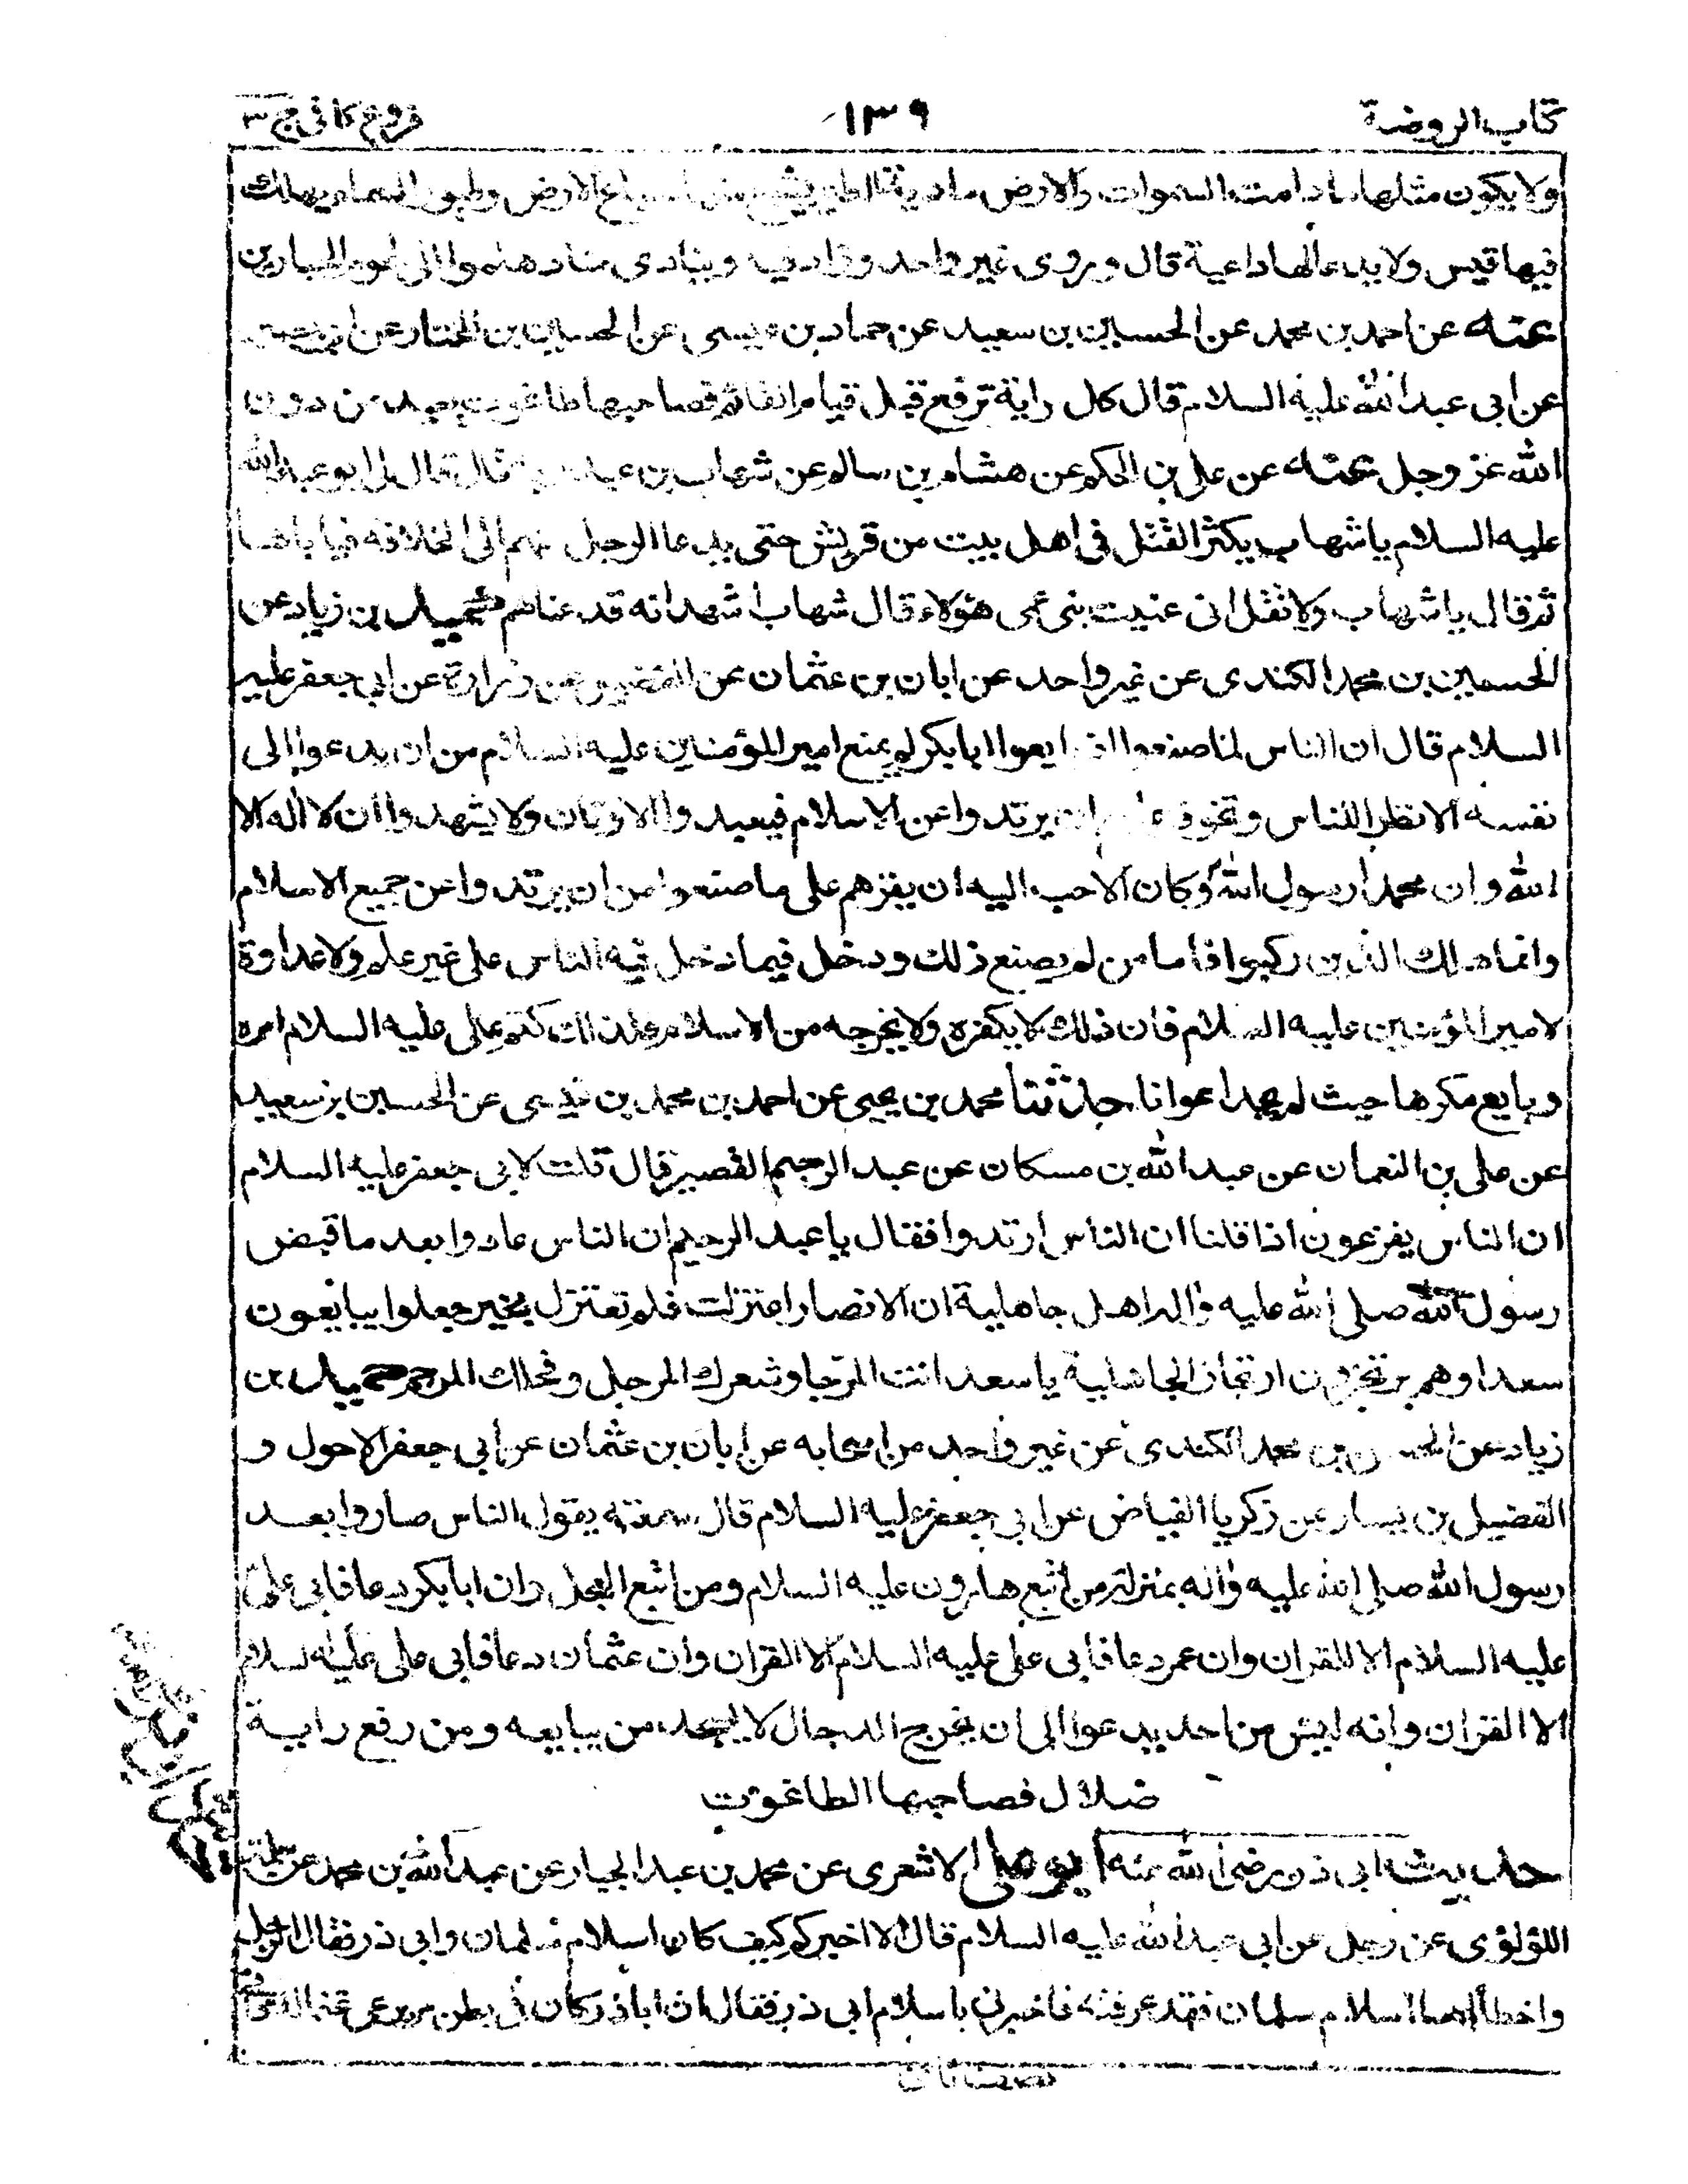 كتاب الروضة ١٣٩ فروع كافى ج ٣
ولا يكون مثلها ما دامت السموات والارض مادبة الطير يشبع منها سباع الارض وطيور السماء يهلك
فيها قيس ولا يدعا لها داعية قال وروى غير واحد وزاد فيه وينادى مناد هلموا الى لحوم الجبارين
عنه عن احمد بن محمد عن الحسين بن سعيد عن حماد بن عيسى عن الحسين بن المختار عن ابى بصير
عن ابى عبد الله عليه السلام قال كل راية ترفع قبل قيام القائم فصاحبها طاغوت يعبد من دون
الله عز وجل عنه عن على بن الحكم عن هشام بن سالم عن شهاب بن عبد قال قال لى ابو عبد الله
عليه السلام يا شهاب يكثر القتل فى اهل بيت من قريش حتى يدعا الرجل منهم الى الخلافة فياباها
ثم قال يا شهاب ولا تقل انى عنيت بنى عمى هؤلاء قال شهاب اشهد انه قد عناهم حميد بن زياد عن
الحسين بن محمد الكندى عن غير واحد عن ابان بن عثمان عن الفضيل عن زرارة عن ابى جعفر عليه
السلام قال ان الناس لما صنعوا اذ بايعوا ابا بكر لم يمنع امير المؤمنين عليه السلام من ان يدعوا الى
نفسه الا نظرا للناس وتخوفا عليهم ان يرتدوا عن الاسلام فيعبدوا الاوثان ولا يشهدوا ان لا اله الا
الله وان محمدا رسول الله وكان الاحب اليه ان يقرهم على ما صنعوا من ان يرتدوا عن جميع الاسلام
وانما هلك الذين ركبوا فاما من لم يصنع ذلك ودخل فيما دخل فيه الناس على غير علم ولا عداوة
لامير المؤمنين عليه السلام فان ذلك لا يكفره ولا يخرجه من الاسلام ولذلك كتم على عليه السلام امره
وبايع مكرها حيث لم يجد اعوانا حدثنا محمد بن يحيى عن احمد بن محمد بن عيسى عن الحسين بن سعيد
عن على بن النعمان عن عبد الله بن مسكان عن عبد الرحيم القصير قال قلت لابى جعفر عليه السلام
ان الناس يفزعون اذا قلنا ان الناس ارتدوا فقال يا عبد الرحيم ان الناس عادوا بعد ما قبض
رسول الله صلى الله عليه واله اهل جاهلية ان الانصار اعتزلت فلم تعتزل بخير جعلوا يبايعون
سعدا وهم يرتجزون ارتجاز الجاهلية يا سعد انت المرجا وشعرك المرجل وفحلك المرجم حميد بن
زياد عن الحسن بن محمد الكندى عن غير واحد من اصحابه عن ابان بن عثمان عن ابى جعفر الاحول و
الفضيل بن يسار عن زكريا الفياض عن ابى جعفر عليه السلام قال سمعته يقول الناس صاروا بعد
رسول الله صلى الله عليه واله بمنزلة من اتبع هارون عليه السلام ومن اتبع العجل وان ابا بكر دعا فابى على
عليه السلام الا القران وان عمر دعا فابى على عليه السلام الا القران وان عثمان دعا فابى على عليه السلام
الا القران وانه ليس من احد يدعوا الى ان يخرج الدجال الا سيجد من يبايعه ومن رفع راية
ضلال فصاحبها الطاغوت
حديث ابى ذر رضى الله عنه ابو على الاشعرى عن محمد بن عبد الجبار عن عبد الله بن محمد عن سلمة
اللؤلؤى عن رجل عن ابى عبد الله عليه السلام قال الا اخبركم كيف كان اسلام سلمان وابى ذر فقال الرجل
واخطأ اما اسلام سلمان فقد عرفته فاخبرنى باسلام ابى ذر فقال ان ابا ذر كان فى بطن مر يرعى غنما له